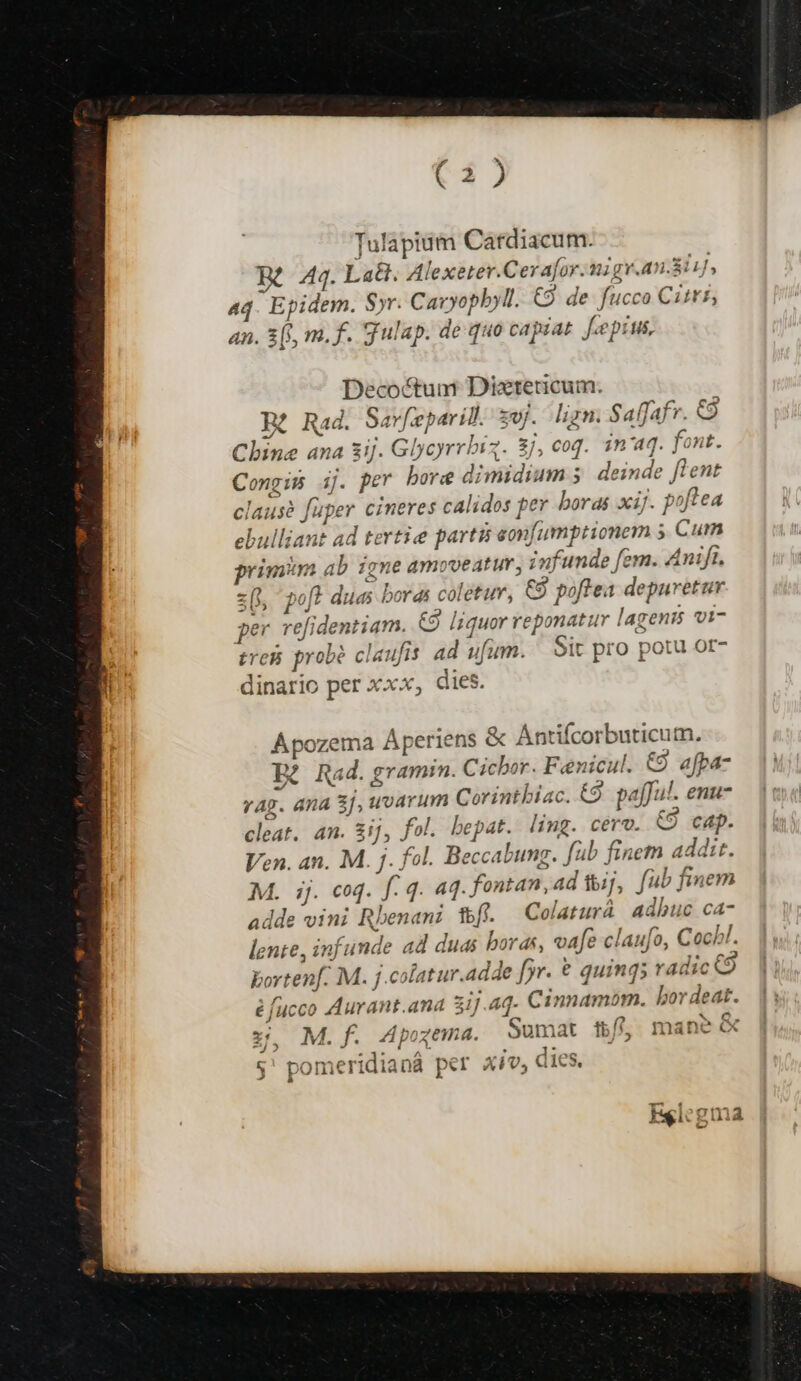 ( 2 )
Julapium Cardiacum.
℞ Aq. Lact. Alexeter. Ceraſor. nigr. an. ℥iij,
aq. Epidem. Syr. Caryophyll. & de ſucco Citri,
an. ℥ſſ, m. f. Julap. de quo capiat ſæpius.
Decoctum Diæteticum.
℞ Rad. Sarſæparill. ℥vj. lign. Saſſafr. &
Chinæ ana ℥ij. Glycyrrhiz. ℥j, coq. in aq. font.
Congiis ij. per horæ dimidium; deinde ſtent
clausè ſuper cineres calidos per horas xij. poſtea
ebulliant ad tertiæ partis conſumptionem; Cum
primùm ab igne amoveatur, infunde ſem. Aniſi,
℥ſſ, poſt duas horas coletur, & poſtea depuretur
per reſidentiam. & liquor reponatur lagenis vi-
treis probè clauſis ad uſum. Sit pro potu or-
dinario per xxx, dies.
Apozema Aperiens & Antiſcorbuticum.
℞ Rad. gramin. Cichor. Fænicul. & aſpa-
rag. ana ℥j, uvarum Corinthiac. & paſſul. enu-
cleat. an. ℥ij, fol. hepat. ling. cerv. & cap.
Ven. an. M. j. fol. Beccabung. ſub finem addit.
M. ij. coq. ſ. q. aq. fontan, ad ℔ij, ſub finem
adde vini Rhenani ℔ſſ. Colaturâ adhuc ca-
lente, infunde ad duas horas, vaſe clauſo, Cochl.
hortenſ. M. j. colatur. adde ſyr. è quinq; radic &
è ſucco Aurant. ana ℥ij. aq. Cinnamom. hordeat.
℥j, M. f. Apozema. Sumat ℔ſſ, manè &
5ª pomeridianâ per xiv, dies.
Eglegma